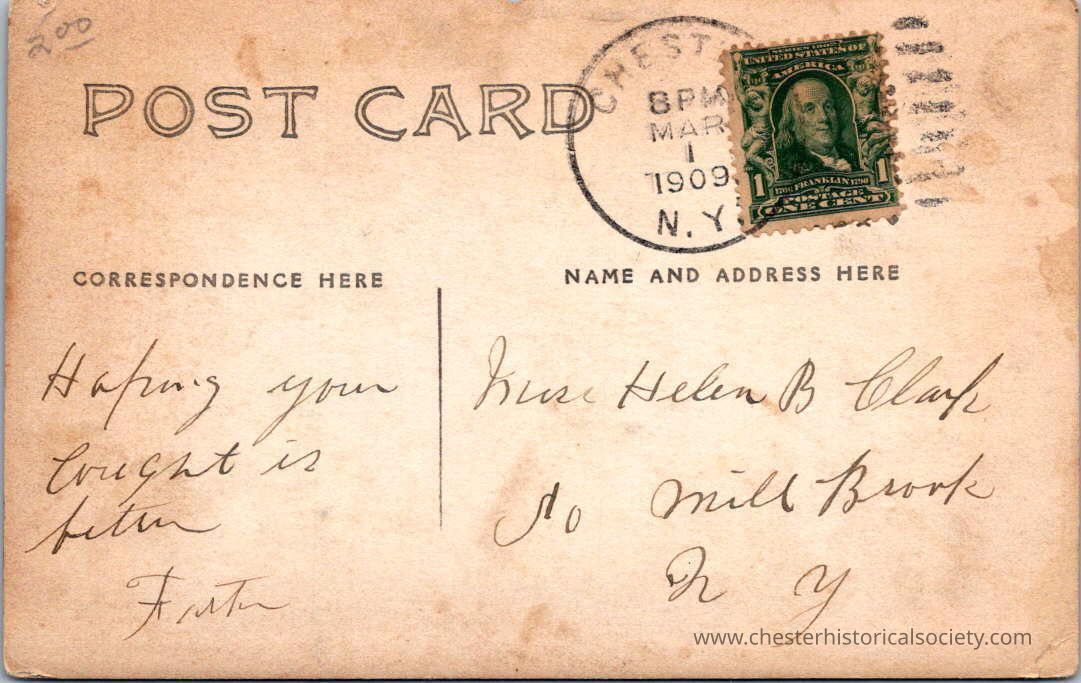 2.00
POST CARD
CHEST
8 PM
MAR
1
1909
N.Y.
SERIES 1902
UNITED STATES OF
AMERICA
1 1
1706 FRANKLIN 1790
POSTAGE
ONE CENT
CORRESPONDENCE HERE
NAME AND ADDRESS HERE
Hoping your
cought is
better
Miss Helen B Clark
So Mill Brook
N Y
www.chesterhistoricalsociety.com